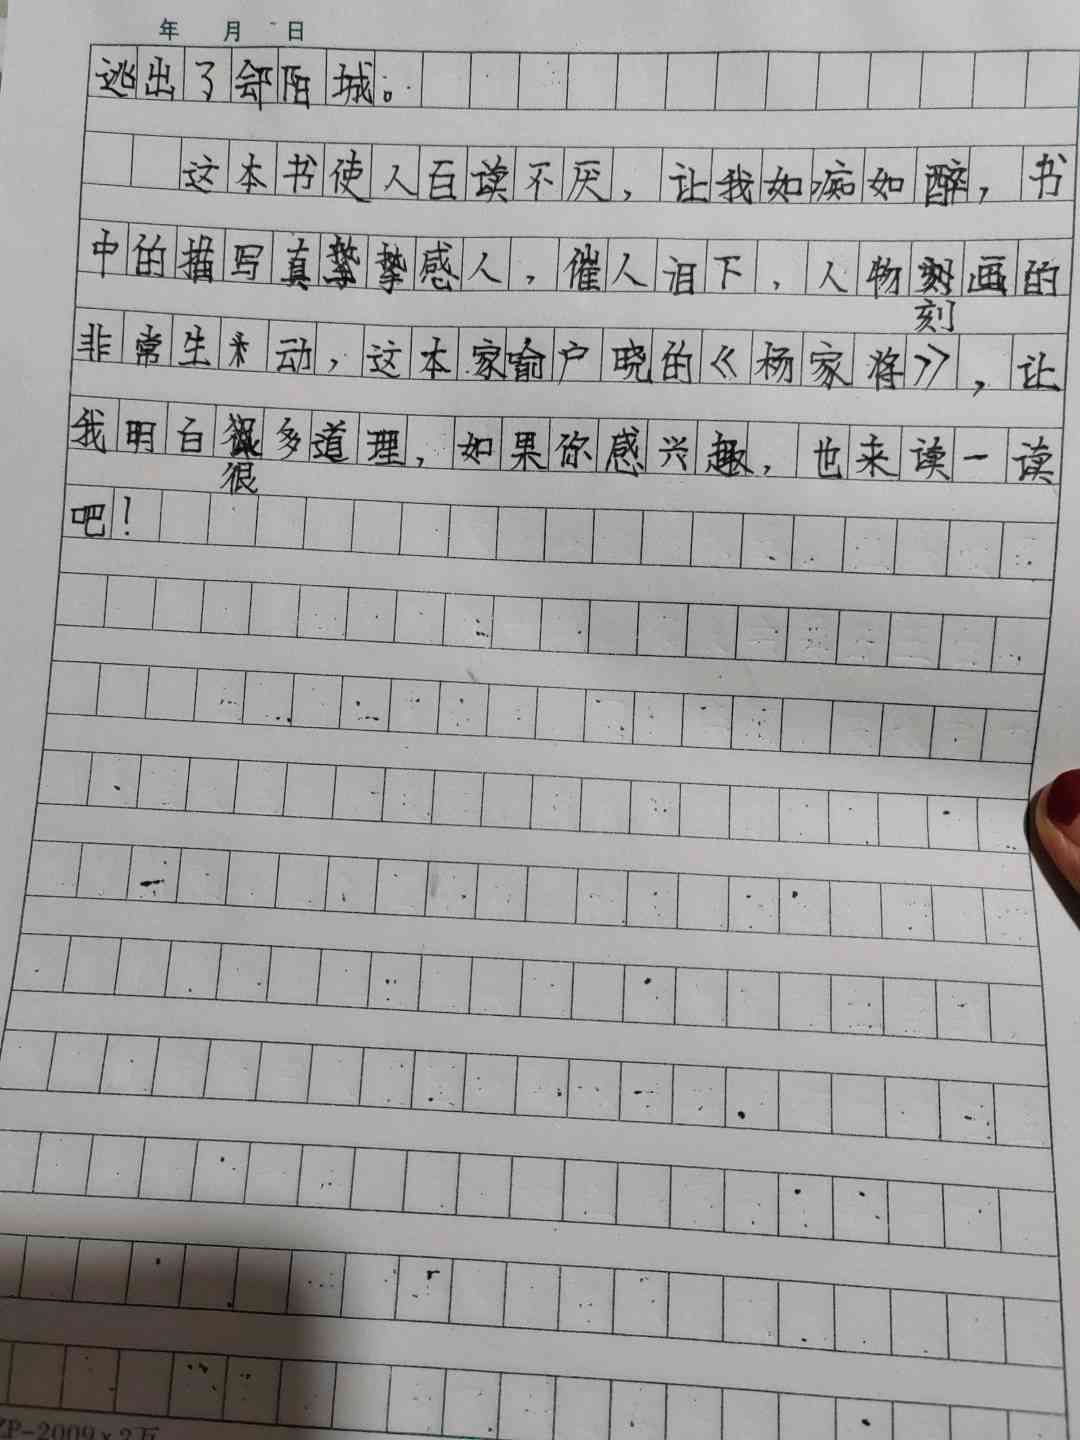 年 月 日
逃出了郐阳城。
这本书使人百读不厌，让我如痴如醉，书
中的描写真挚挚感人，催人泪下，人物刻画的
刻
非常生动，这本家喻户晓的《杨家将》，让
我明白很多道理，如果你感兴趣，也来读一读
很
吧！
ZP-2009×2万